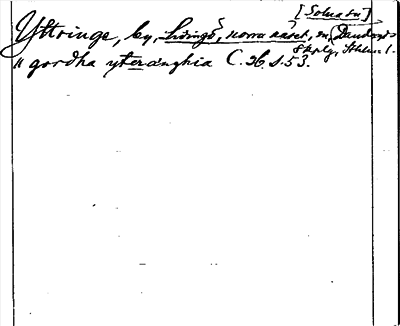 [Solna sn]
Yttringe, by, Lidingö, norra näset, sn, Danderyds
skplg, Sthlms l.
" gordha yteranghia C. 36. s. 53.